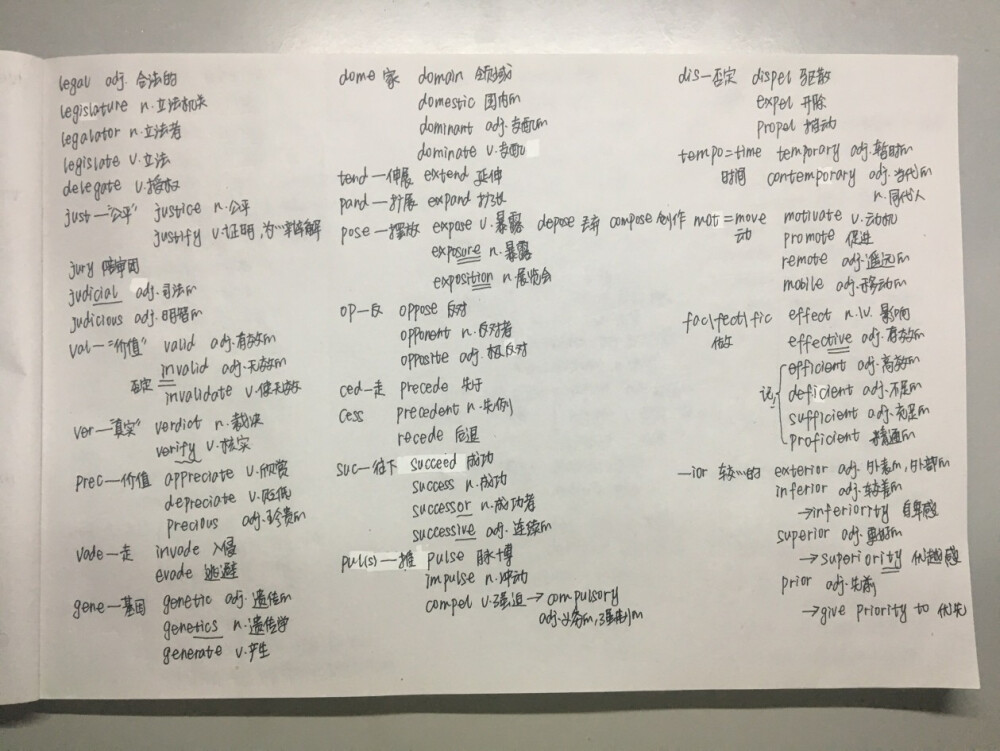 legal adj. 合法的
legislature n.立法机关
legalator n.立法者
legislate v.立法
delegate v.授权
just—"公平" justice n.公平
justify v.证明,为…辩解
jury 陪审团
judicial adj.司法的
judicious adj.明智的
val—"价值" valid adj.有效的
invalid adj.无效的
否定 invalidate v.使无效
ver—"真实" verdict n.裁决
verify v.核实
prec—价值 appreciate v.欣赏
depreciate v.贬低
precious adj.珍贵的
vade—走 invade 入侵
evade 逃避
gene—基因 genetic adj.遗传的
genetics n.遗传学
generate v.产生
dome 家 domain 领域
domestic 国内的
dominant adj.支配的
dominate v.支配
tend—伸展 extend 延伸
pand—扩展 expand 扩张
pose—摆放 expose v.暴露 depose 弃 compose 创作
exposure n.暴露
exposition n.展览会
op—反 oppose 反对
opponent n.反对者
opposite adj.相反对
ced—走 precede 先于
cess precedent n.先例
recede 后退
suc—往下 succeed 成功
success n.成功
successor n.成功者
successive adj.连续的
pul(s)—推 pulse 脉搏
impulse n.冲动
compel v.强迫→compulsory
adj.义务的,强制的
dis—否定 dispel 驱散
expel 开除
propel 推动
tempo=time temporary adj.暂时的
时间 contemporary adj.当代的
n.同代人
mot=move motivate v.动机
动 promote 促进
remote adj.遥远的
mobile adj.移动的
fac\fect\fic effect n.\v.影响
做 effective adj.有效的
efficient adj.高效的
记 deficient adj.不足的
sufficient adj.充足的
proficient 精通的
—ior 较…的 exterior adj.外表的,外部的
inferior adj.较差的
→inferiority 自卑感
superior adj.更好的
→superiority 优越感
prior adj.先前
→give priority to 优先